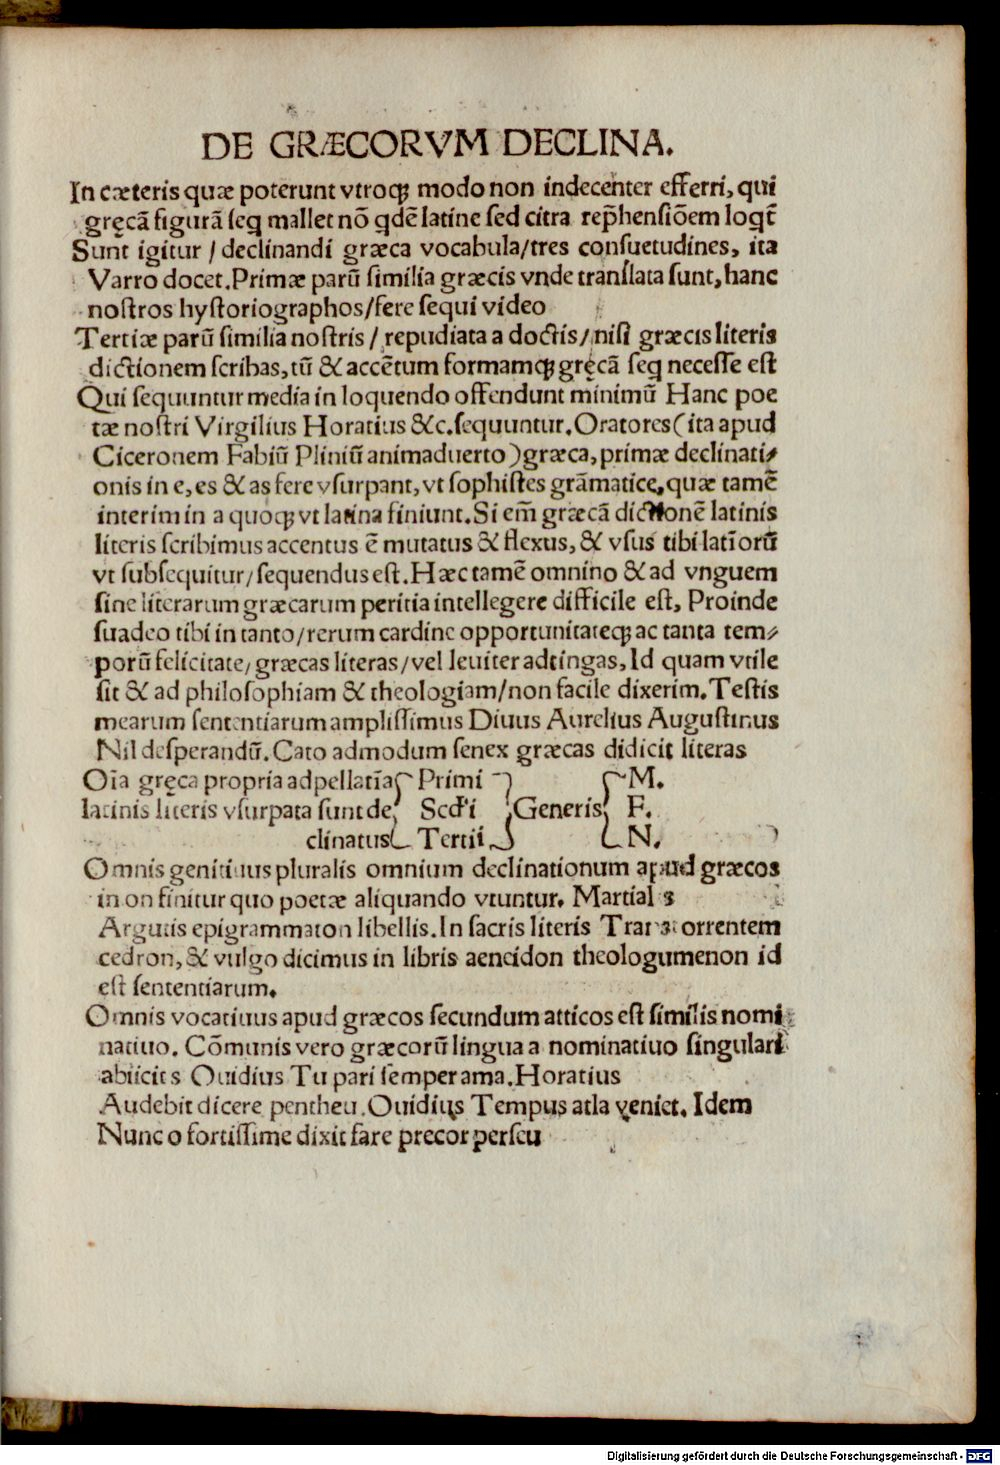 DE GRÆCORVM DECLINA.
In cæteris quæ poterunt vtroqꝫ modo non indecenter efferri, qui
gręcā figurā seq mallet nō qdē latine sed citra rep̄hensiōem loqt̄
Sunt igitur / declinandi græca vocabula/tres consuetudines, ita
Varro docet. Primæ parū similia græcis vnde translata sunt, hanc
nostros hystoriographos/fere sequi video
Tertiæ parū similia nostris / repudiata a doctis/nisi græcis literis
dictionem scribas, tū & accētum formamqꝫ gręcā seq necesse est
Qui sequuntur media in loquendo offendunt minimū Hanc poe
tæ nostri Virgilius Horatius &c. sequuntur. Oratores (ita apud
Ciceronem Fabiū Pliniū animaduerto) græca, primæ declinati⸗
onis in e, es & as fere vsurpant, vt sophistes grāmatice, quæ tamē
interim in a quoqꝫ vt latina finiunt. Si em̄ græcā dictionē latinis
literis scribimus accentus ē mutatus & flexus, & vsus tibi latīorū
vt subsequitur/sequendus est. Hæc tamē omnino & ad vnguem
sine literarum græcarum peritia intellegere difficile est, Proinde
suadeo tibi in tanto/rerum cardine opportunitateqꝫ ac tanta tem⸗
porū felicitate/græcas literas/vel leuiter adtingas, Id quam vtile
sit & ad philosophiam & theologiam/non facile dixerim. Testis
mearum sententiarum amplissimus Diuus Aurelius Augustinus
Nil desperandū. Cato admodum senex græcas didicit literas
Oīa gręca propria adpellatīa Primi M.
latinis literis vsurpata sunt de Scd'i Generis F.
clinatus Tertii N.
Omnis genitiuus pluralis omnium declinationum apud græcos
in on finitur quo poetæ aliquando vtuntur. Martial
Argutis epigrammaton libellis. In sacris literis orrentem
cedron, & vulgo dicimus in libris aeneidon theologumenon id
est sententiarum.
Omnis vocatiuus apud græcos secundum atticos est similis nomi
natiuo. Cōmunis vero græcorū lingua a nominatiuo singulari
abiicit s Ouidius Tu pari semper ama. Horatius
Audebit dicere pentheu. Ouidius Tempus atla veniet. Idem
Nunc o fortissime dixit fare precor perseu
Digitalisierung gefördert durch die Deutsche Forschungsgemeinschaft - DFG